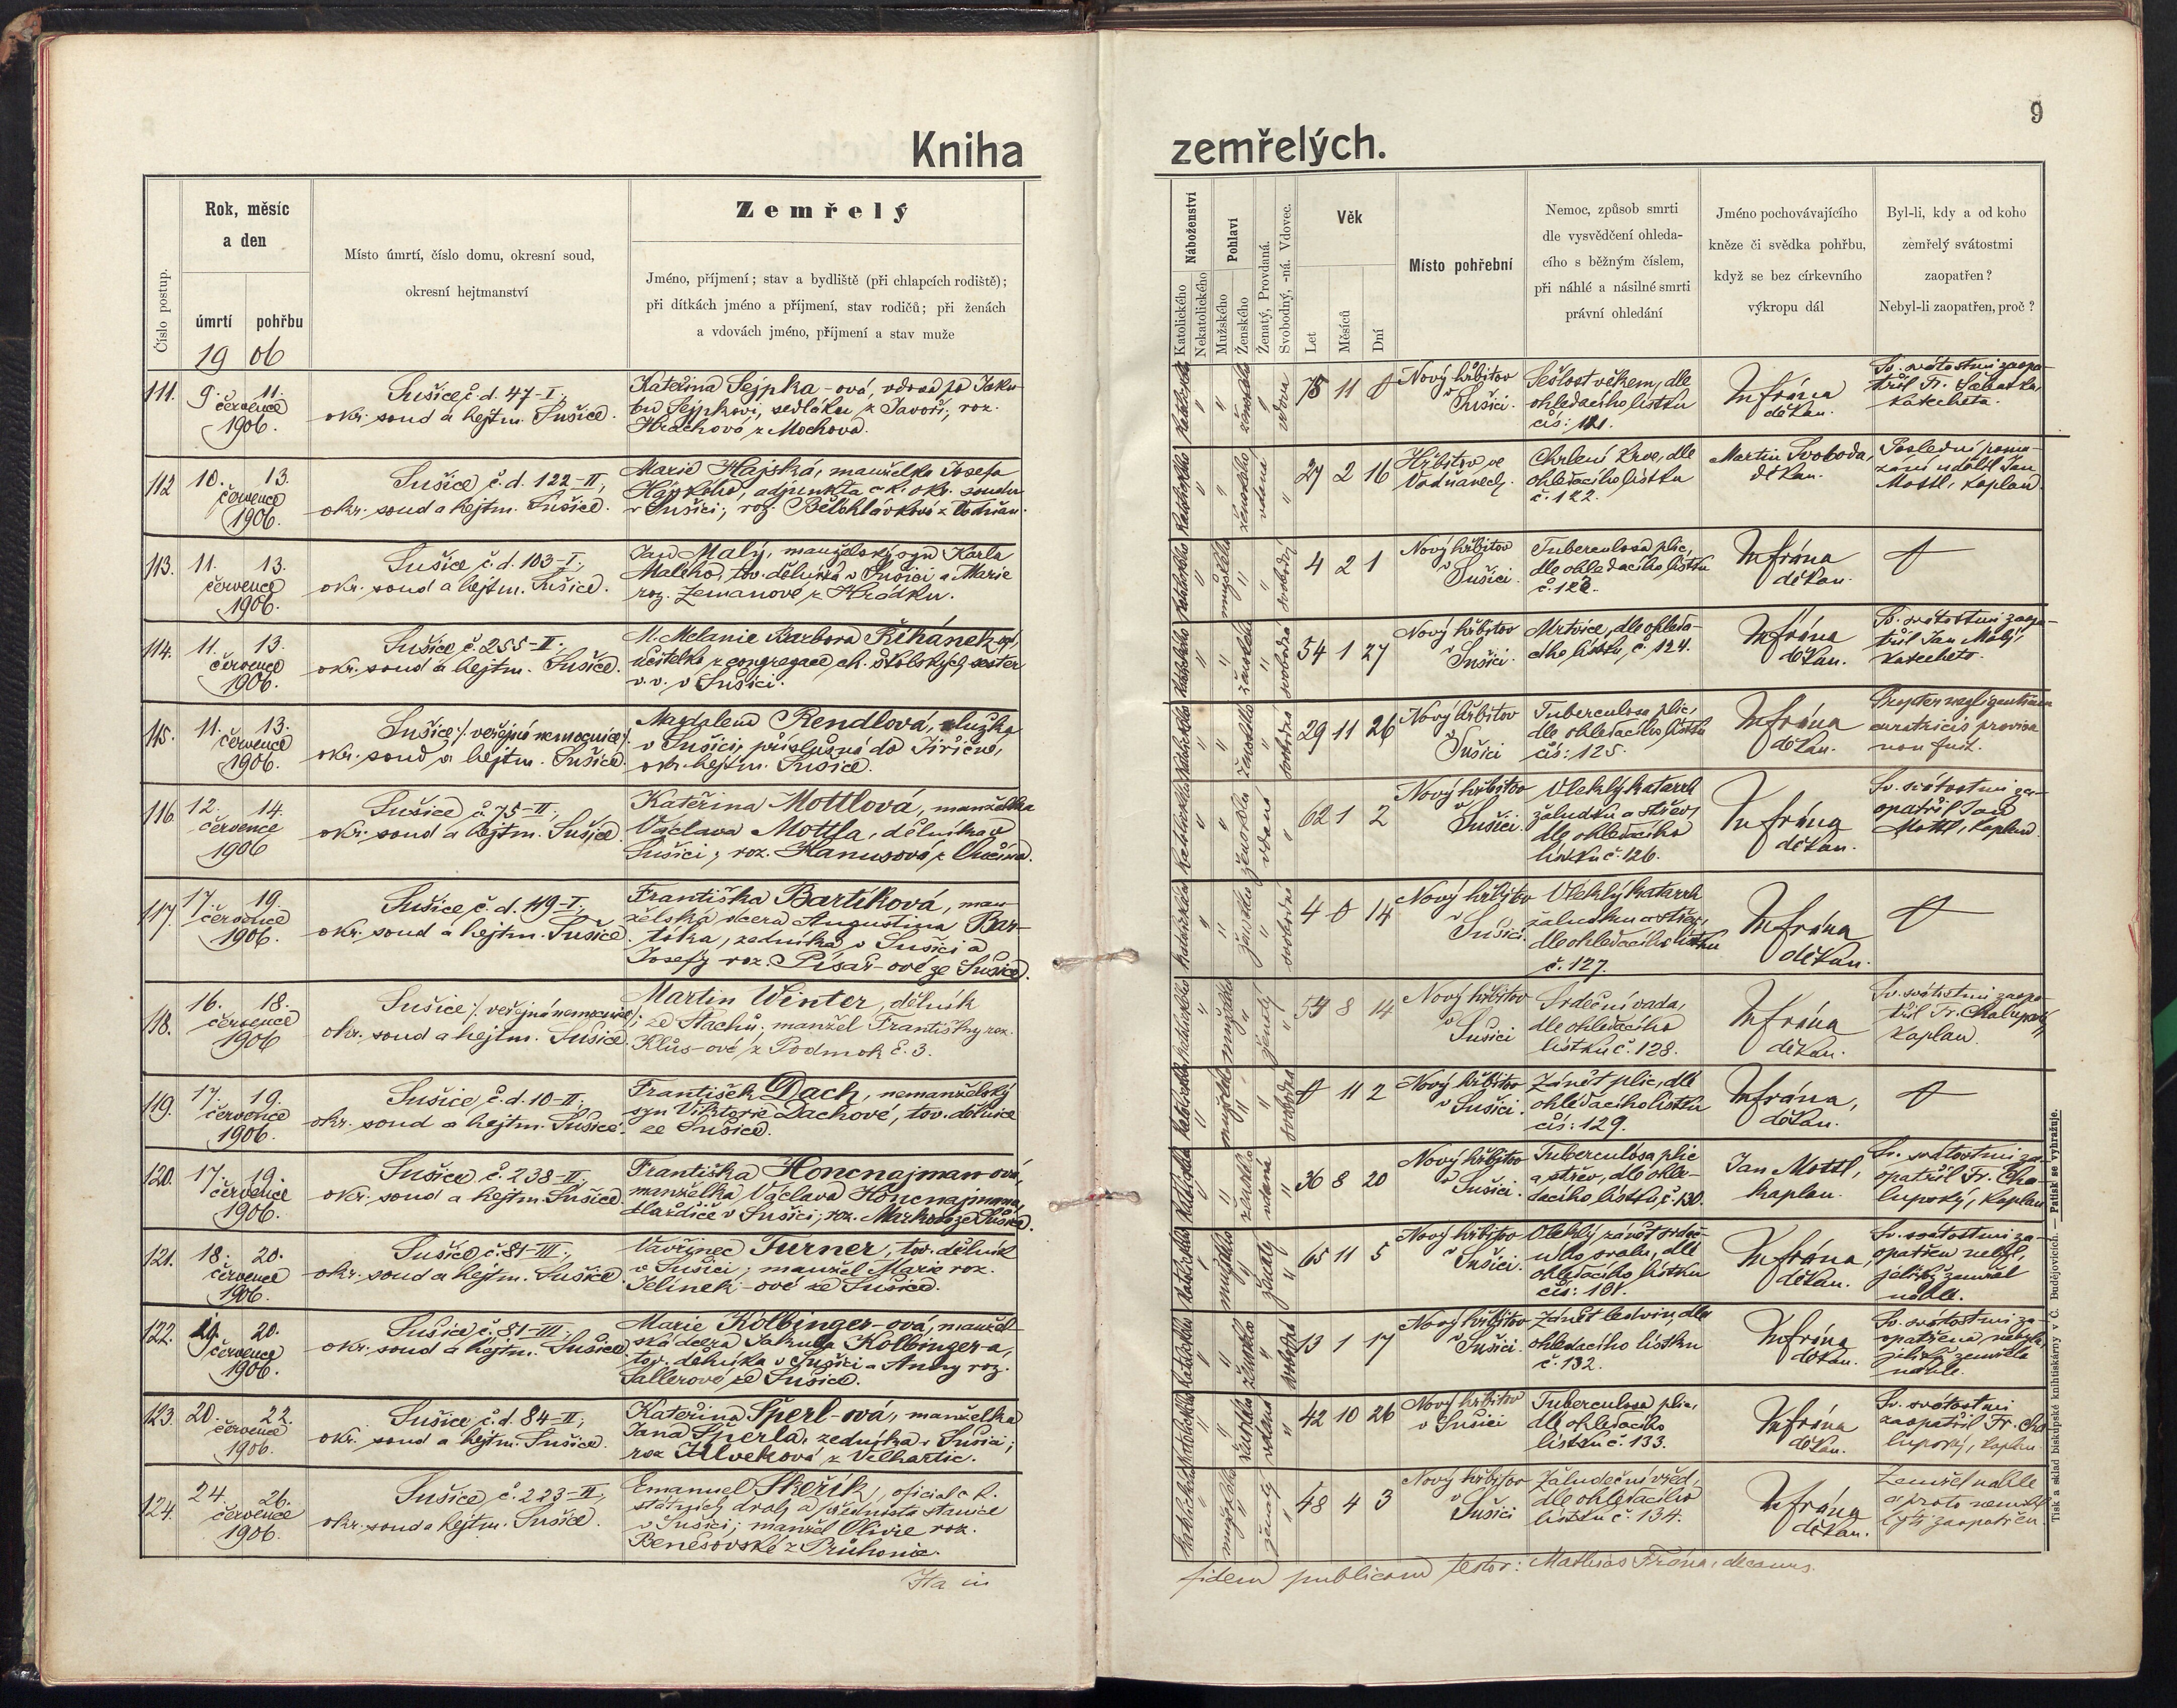 9
Kniha zemřelých.
Číslo postup.
Rok, měsíc
a den
úmrtí
pohřbu
19 06
Místo úmrtí, číslo domu, okresní soud,
okresní hejtmanství
Zemřelý
Jméno, příjmení; stav a bydliště (při chlapcích rodiště);
při dítkách jméno a příjmení, stav rodičů; při ženách
a vdovách jméno, příjmení a stav muže
Náboženství
Katolického
Nekatolického
Pohlaví
Mužského
Ženského
Ženatý, Provdaná.
Svobodný, -ná. Vdovec.
Věk
Let
Měsíců
Dní
Místo pohřební
Nemoc, způsob smrti
dle vysvědčení ohleda-
cího s běžným číslem,
při náhlé a násilné smrti
právní ohledání
Jméno pochovávajícího
kněze či svědka pohřbu,
když se bez církevního
výkropu dál
Byl-li, kdy a od koho
zemřelý svátostmi
zaopatřen?
Nebyl-li zaopatřen, proč?
111.
9. 11.
července
1906.
Sušice č. d. 47-I.,
okr. soud a hejtm. Sušice.
Kateřina Sejpka-ová, vdova po Jaku-
bu Sejpkovi, sedláku z Javoří, roz.
Hrachová z Mochova.
katolického
ženského
vdova
75 11 0
Nový hřbitov
v Sušici.
Sešlost věkem, dle
ohledacího lístku
čís: 121.
M Frána
děkan.
Sv. svátostmi zaopa-
třil Fr.
katecheta.
112
10. 13.
července
1906.
Sušice č. d. 122-II,
okr. soud a hejtm. Sušice.
Marie Hajská, manželka Josefa
Hajského, adjunkta c. k. okr. soudu
v Sušici; roz. Bělohlávková z Vodňan.
katolického
ženského
vdaná
27 2 16
Hřbitov ve
Vodňanech.
Chrlení krve, dle
ohledacího lístku
č. 122.
Martin Svoboda,
děkan.
Poslední poma-
zání udělil Jan
Mottl, kaplan.
113.
11. 13.
července
1906.
Sušice č. d. 103-I.,
okr. soud a hejtm. Sušice.
Jan Malý, manželský syn Karla
Malého, tov. dělníka v Sušici a Marie
roz. Zemanové z Hrádku.
katolického
mužského
svobodný
4 2 1
Nový hřbitov
v Sušici.
Tuberculosa plic,
dle ohledacího lístku
č. 123.
M Frána
děkan.
114.
11. 13.
července
1906.
Sušice č. 255-II.,
okr. soud a hejtm. Sušice.
M. Melanie Barbora Řihánek-ová,
učitelka z congregace ch. školských sester
v. v. v Sušici.
katolického
ženského
svobodná
54 1 27
Nový hřbitov
v Sušici.
Mrtvice, dle ohleda-
cího lístku č. 124.
M Frána
děkan.
Sv. svátostmi zaopa-
třil Jan Malý,
katecheta.
115.
11. 13.
července
1906.
Sušice /: veřejná nemocnice :/
okr. soud a hejtm. Sušice.
Magdalena Rendlová, služka
v Sušici, příslušná do Jiřičné,
okr. hejtm. Sušice.
katolického
ženského
svobodná
29 11 26
Nový hřbitov
v Sušici
Tuberculosa plic,
dle ohledacího lístku
čís: 125.
M Frána
děkan.
Propter negligentiam
curatricis provisa
non fuit.
116.
12. 14.
července
1906
Sušice č. 75-II.,
okr. soud a hejtm. Sušice.
Kateřina Mottlová, manželka
Václava Mottla, dělníka v
Sušici; roz. Hanusová z
katolického
ženského
vdaná
62 1 2
Nový hřbitov
v Sušici.
Vleklý katarrh
žaludku a střev,
dle ohledacího
lístku č. 126.
M Frána
děkan.
Sv. svátostmi za-
opatřil Jan
Mottl, kaplan.
117.
17. 19.
července
1906.
Sušice č. d. 119-I.,
okr. soud a hejtm. Sušice.
Františka Bartíková, man-
želská dcera Augustina Bar-
tíka, zedníka v Sušici a
Josefy roz. Písař-ové ze Sušice.
katolického
ženského
svobodná
4 0 14
Nový hřbitov
v Sušici.
Vleklý katarrh
žaludku a střev,
dle ohledacího lístku
č. 127.
M Frána
děkan.
118.
16. 18.
července
1906
Sušice /: veřejná nemocnice :/
okr. soud a hejtm. Sušice.
Martin Winter, dělník
ze Stachů; manžel Františky roz.
Klůs-ové z Podmok č. 3.
katolického
mužského
ženatý
59 8 14
Nový hřbitov
v Sušici
Srdeční vada,
dle ohledacího
lístku č. 128.
M Frána
děkan.
Sv. svátostmi zaopa-
třil Fr. Chalupský,
kaplan.
119.
17. 19.
července
1906.
Sušice č. d. 10-II.,
okr. soud a hejtm. Sušice.
František Dach, nemanželský
syn Viktorie Dachové, tov. dělnice
ze Sušice.
katolického
mužského
0 11 2
Nový hřbitov
v Sušici.
Zánět plic, dle
ohledacího lístku
čís: 129.
M Frána,
děkan.
120.
17. 19.
července
1906.
Sušice č. 238-II.,
okr. soud a hejtm. Sušice.
Františka Honcnajman-ová,
manželka Václava Honcnajmana,
v Sušici; roz. ze Sušice.
katolického
ženského
vdaná
36 8 20
Nový hřbitov
v Sušici.
Tuberculosa plic
a střev, dle ohle-
dacího lístku č. 130.
Jan Mottl,
kaplan.
Sv. svátostmi za-
opatřil Fr. Cha-
lupský, kaplan
121.
18. 20.
července
1906.
Sušice č. 81-III.,
okr. soud a hejtm. Sušice.
Vavřinec Turner, tov. dělník
v Sušici; manžel Marie roz.
Jelínek-ové ze Sušice.
katolického
mužského
ženatý
65 11 5
Nový hřbitov
v Sušici.
Vleklý zánět srdeč-
ního svalu, dle
ohledacího lístku
čís: 131.
M Frána,
děkan.
Sv. svátostmi za-
opatřen nebyl,
jelikož zemřel
náhle.
122.
19. 20.
července
1906.
Sušice č. 81-III.,
okr. soud a hejtm. Sušice.
Marie Kolbinger-ová, manžel-
ská dcera Jakuba Kolbinger-a,
tov. dělníka v Sušici a Anny roz.
Sallerové ze Sušice.
katolického
ženského
svobodná
13 1 17
Nový hřbitov
v Sušici.
Zánět ledvin, dle
ohledacího lístku
č. 132.
M Frána
děkan.
Sv. svátostmi za-
opatřena nebyla,
jelikož zemřela
náhle.
123.
20. 22.
července
1906.
Sušice č. d. 84-II.,
okr. soud a hejtm. Sušice.
Kateřina Šperl-ová, manželka
Jana Šperla, zedníka v Sušici;
roz. z Velhartic.
katolického
ženského
vdaná
42 10 26
Nový hřbitov
v Sušici
Tuberculosa plic,
dle ohledacího
lístku č. 133.
M Frána
děkan.
Sv. svátostmi
zaopatřil Fr. Cha-
lupský, kaplan
124.
24. 26.
července
1906.
Sušice č. 223-II.,
okr. soud a hejtm. Sušice.
Emanuel Skeřík, oficial c. k.
státních drah a přednosta stanice
v Sušici; manžel Olivie roz.
Benešovské z Průhonic.
katolického
mužského
ženatý
48 4 3
Nový hřbitov
v Sušici
Žaludeční vřed,
dle ohledacího
lístku č. 134.
M Frána
děkan.
Zemřel náhle
a proto nemohl
býti zaopatřen
Ita in fidem publicam testor: Mathias Frána, decanus.
Tisk a sklad biskupské knihtiskárny v Č. Budějovicích. — Patisk se vyhražuje.